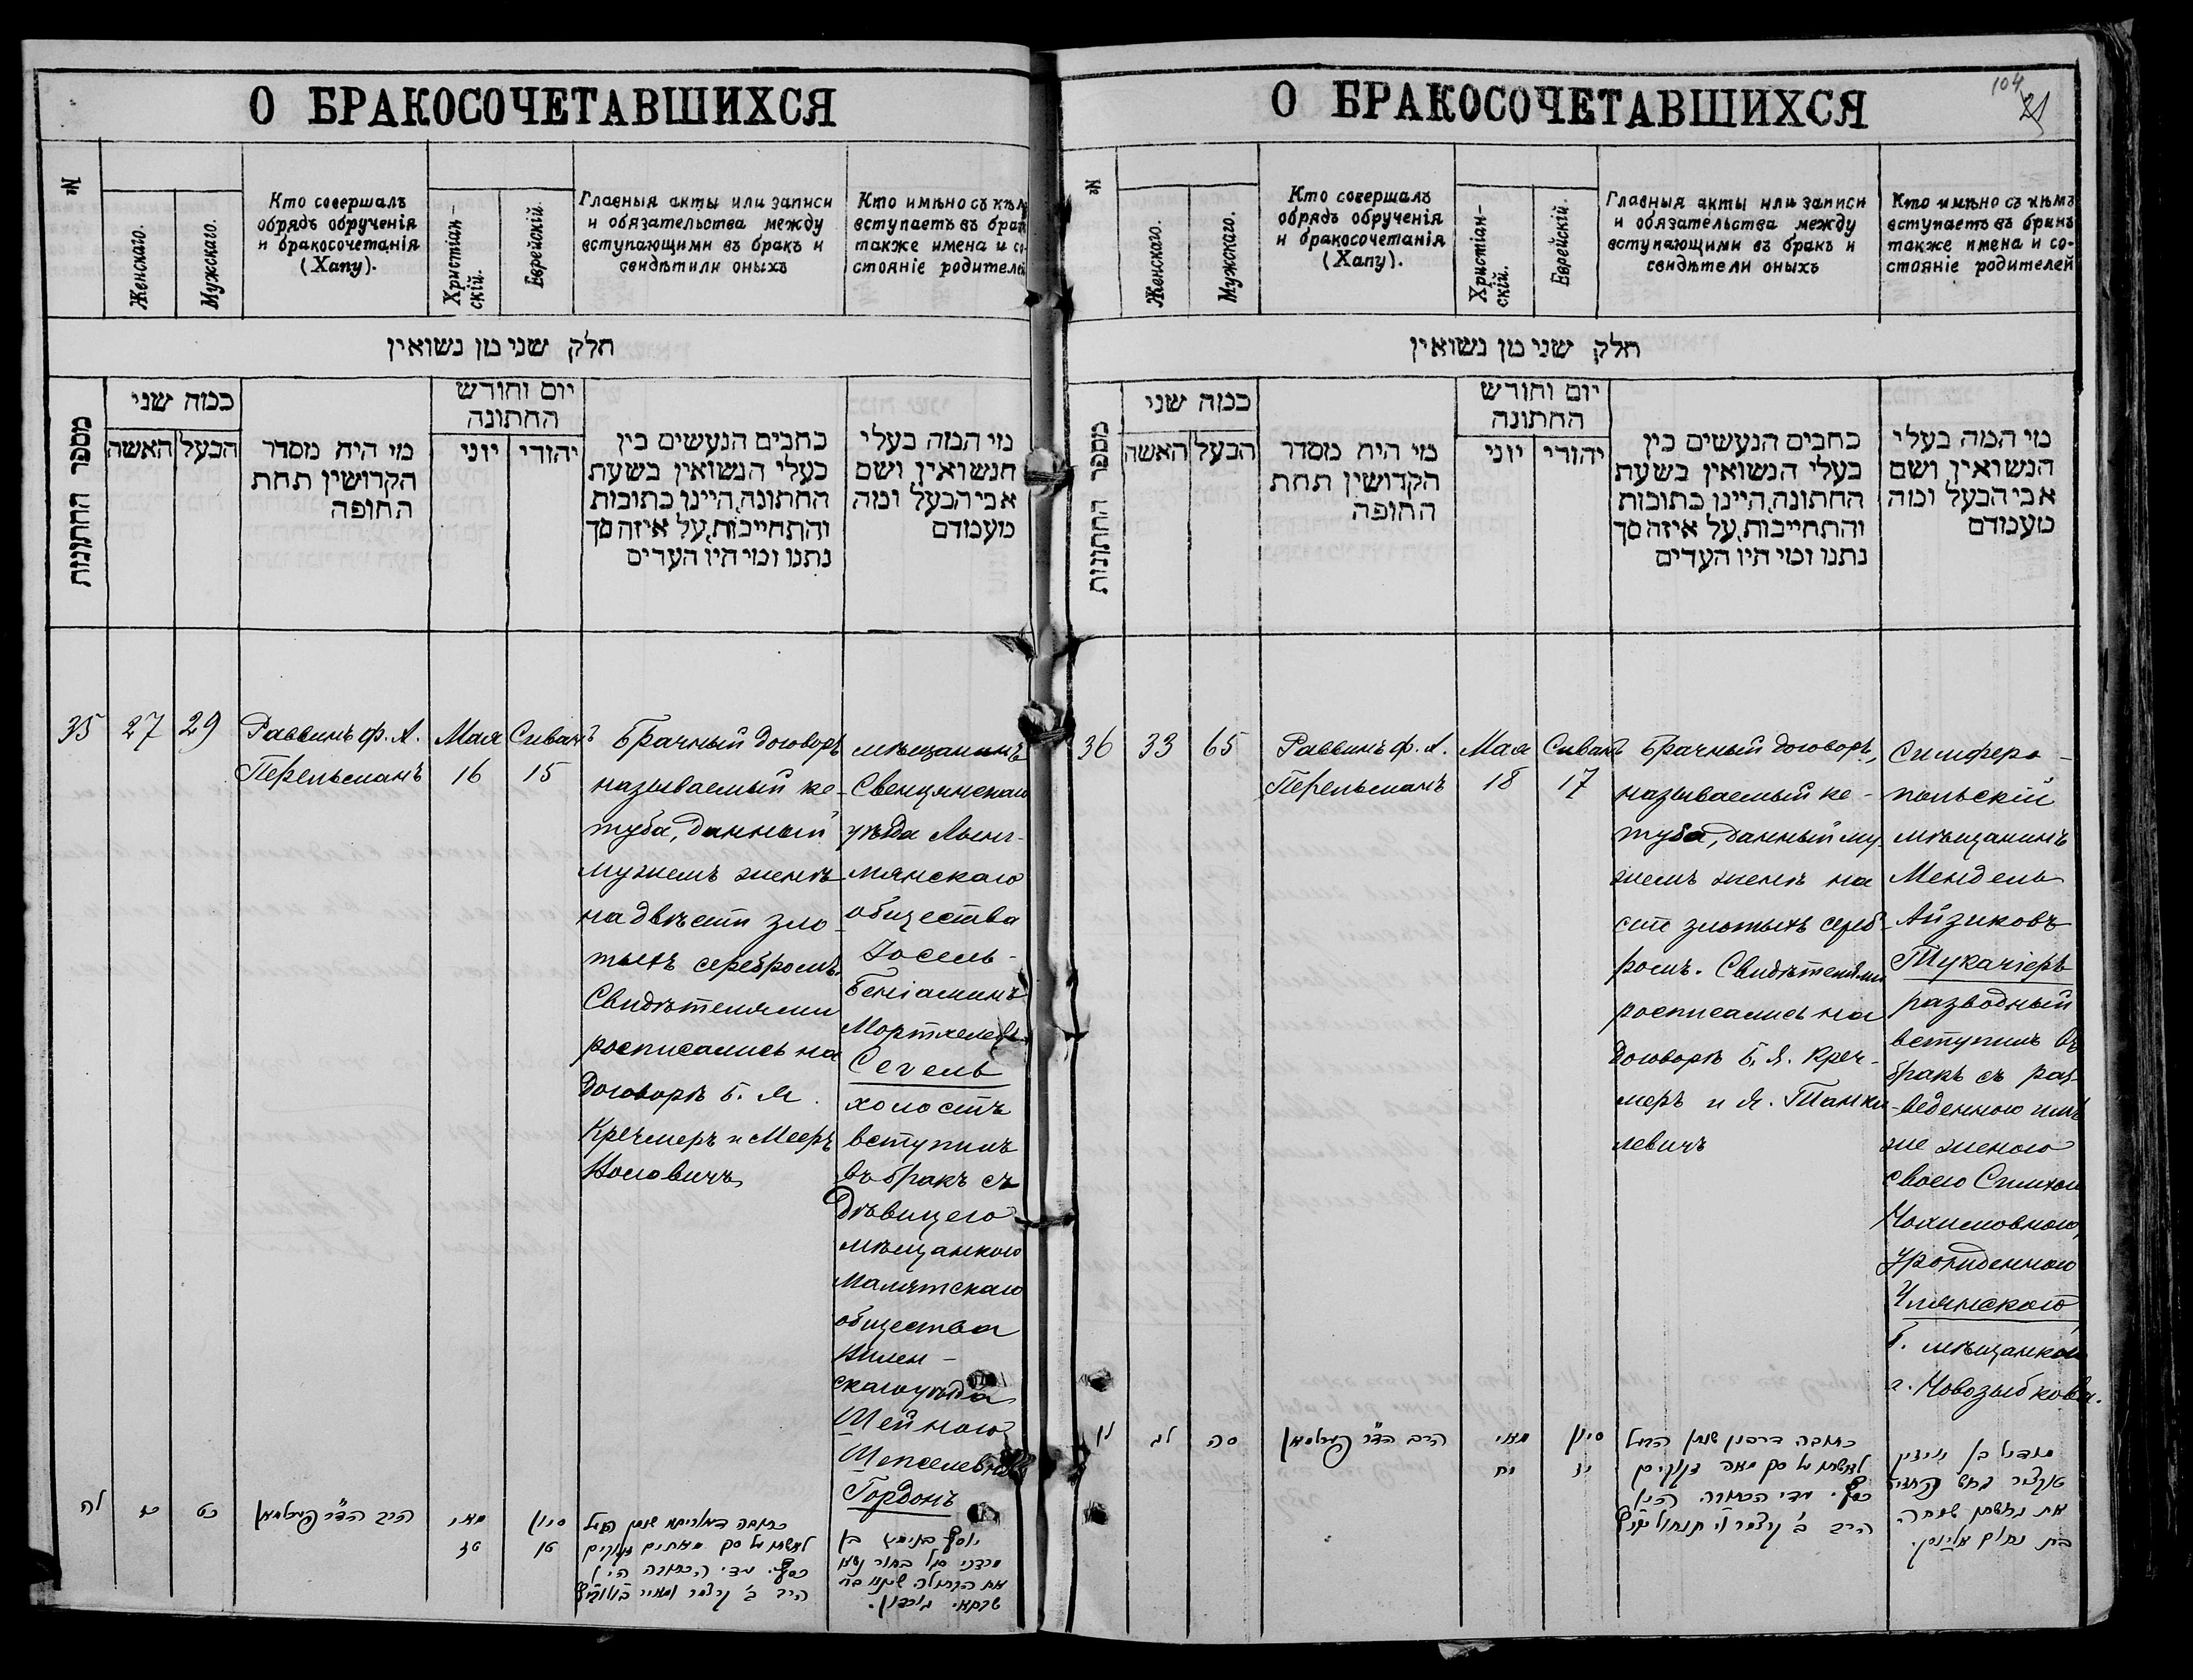 О БРАКОСОЧЕТАВШИХСЯ
№
Женскаго.
Мужскаго.
Кто совершалъ
обрядъ обрученія
и бракосочетанія
(Хапу).
Христіан-
скій.
Еврейскій.
Главныя акты или записи
и обязательства между
вступающими въ бракъ и
свидѣтили оныхъ
Кто имѣно съ кѣм
вступаетъ въ брак
также имена и со-
стояніе родителей
חלק שני מן נשואין
מספר החתונות
כמה שני
האשה
הבעל
מי היה מסדר
הקדושין תחת
החופה
יום וחורש
החתונה
יוני
יהודי
כתבים הנעשים בין
בעלי הנשואין בשעת
החתונה, היינו כתובות
והתחייבות, על איזה סך
נתנו ומי היו העדים
מי המה בעלי
הנשואין ושם
אבי הבעל ומה
מעמדם
35
27
29
Раввинъ Ф. А.
Перельманъ
Мая
16
Сиванъ
15
Брачный договоръ
называемый ке-
туба, данный
мужемъ женѣ
на двѣсти зло-
тыхъ серебромъ.
Свидѣтелями
росписались на
договорѣ Б. Я.
Кречмеръ и Мееръ
мѣщанинъ
Свенцянскаго
уѣзда Лынг-
мянскаго
общества
Іосель-
Беніаминъ
Мортхелевъ
Сегель
холостъ
вступилъ
въ бракъ съ
дѣвицею
мѣщанкою
Малятскаго
общества
Вилен-
скаго уѣзда
Шейною
Шепселевною
Гордонъ
לה
כט
הרב הד״ר פערלמאן
מאי
טז
סיון
טו
לאשתו על סך מאתים זקוקים
כסף. עדי הכתובה היו
יוסף בנימין בן
מרדכי סגל בחור נשא
את הבתולה שיינא בת
שבתאי גורדון.
О БРАКОСОЧЕТАВШИХСЯ
104
21
№
Женскаго.
Мужскаго.
Кто совершалъ
обрядъ обрученія
и бракосочетанія
(Хапу).
Христіан-
скій.
Еврейскій.
Главныя акты или записи
и обязательства между
вступающими въ бракъ и
свидѣтели оныхъ
Кто имѣно съ кѣмъ
вступаетъ въ бракъ
также имена и со-
стояніе родителей
חלק שני מן נשואין
מספר החתונות
כמה שני
האשה
הבעל
מי היה מסדר
הקדושין תחת
החופה
יום וחורש
החתונה
יוני
יהודי
כתבים הנעשים בין
בעלי הנשואין בשעת
החתונה, היינו כתובות
והתחייבות, על איזה סך
נתנו ומי היו העדים
מי המה בעלי
הנשואין ושם
אבי הבעל ומה
מעמדם
36
33
65
Раввинъ Ф. А.
Перельманъ
Мая
18
Сиванъ
17
Брачный договоръ,
называемый ке-
туба, данный му-
жемъ женѣ на
сто злотыхъ сереб-
ромъ. Свидѣтелями
росписались на
договорѣ Б. Я. Креч-
меръ и Я. Танхи-
левичъ
Симферо-
польскій
мѣщанинъ
Мендель
Айзиковъ
Тукачіеръ
разводный
вступилъ въ
бракъ съ раз-
веденною имъ
же женою
своею Симхою
Нохимовною,
урожденною
Улянскою,
б. мѣщанкою
г. Новозыбкова.
לו
לג
סה
הרב הד״ר פערלמאן
מאי
יח
סיון
יז
כתובה דרבנן שנתן הבעל
לאשתו על סך מאה זקוקים
כסף. עדי הכתובה היו
מענדיל בן אייזיק
את גרושתו שמחה
בת נחום אליאנסקי.